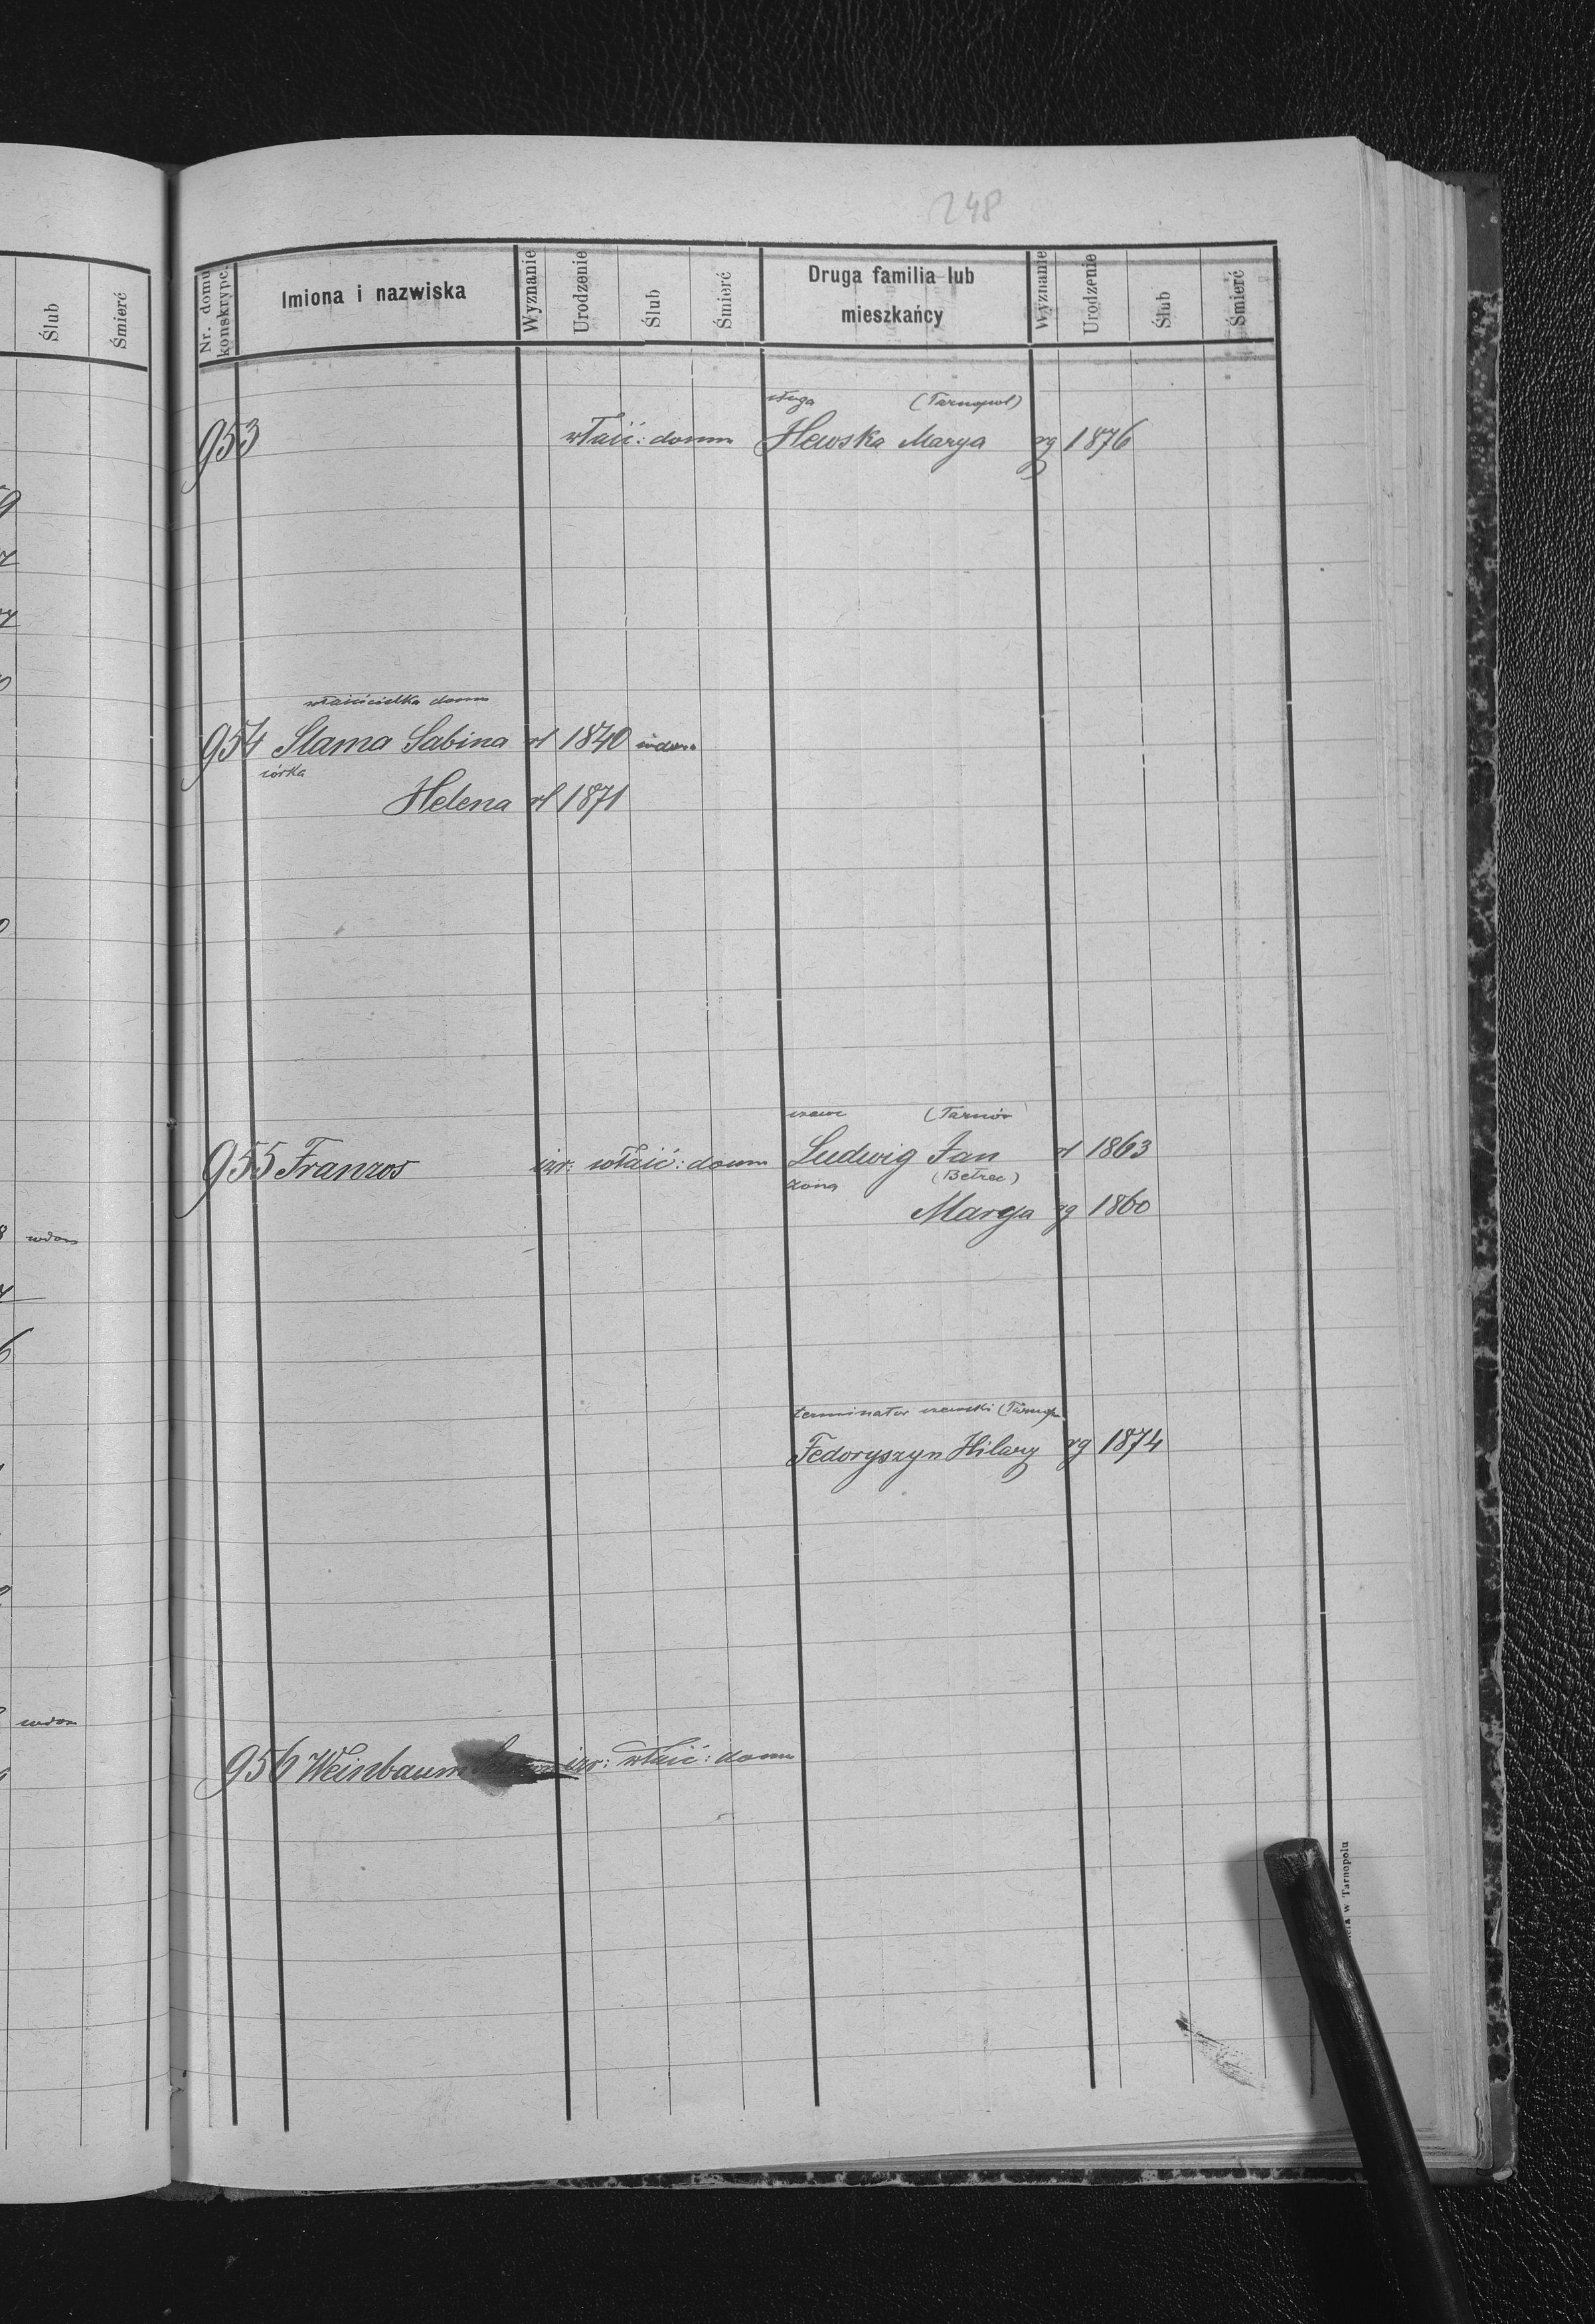 248
Ślub Śmierć
Nr. domu konskrypc. Imiona i nazwiska Wyznanie Urodzenie Ślub Śmierć Druga familia lub mieszkańcy Wyznanie Urodzenie Ślub Śmierć
sługa (Tarnopol)
953 właść: domu Hewska Marya rg 1876
właścicielka domu
954 Slama Sabina rl 1840 wdowa
córka
Helena rl 1871
szewc (Tarnów)
955 Franzos izr: właść: domu Ludwig Jan rl 1863
żona (Bełzec)
Marya rg 1860
wdow
terminator szewski (Tarnop
Fedoryszyn Hilary rg 1874
wdow
956 Weinbaum izr: właść: domu
w Tarnopolu